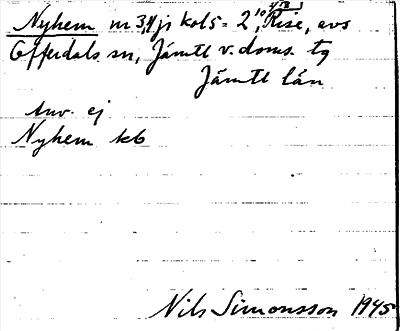 Nyhem nr 3,4 js kol5 = 2,10 Rise, avs
Offerdals sn, Jämtl v. doms. tg
Jämtl län
Anv. ej
Nyhem kb
Nils Simonsson 1945